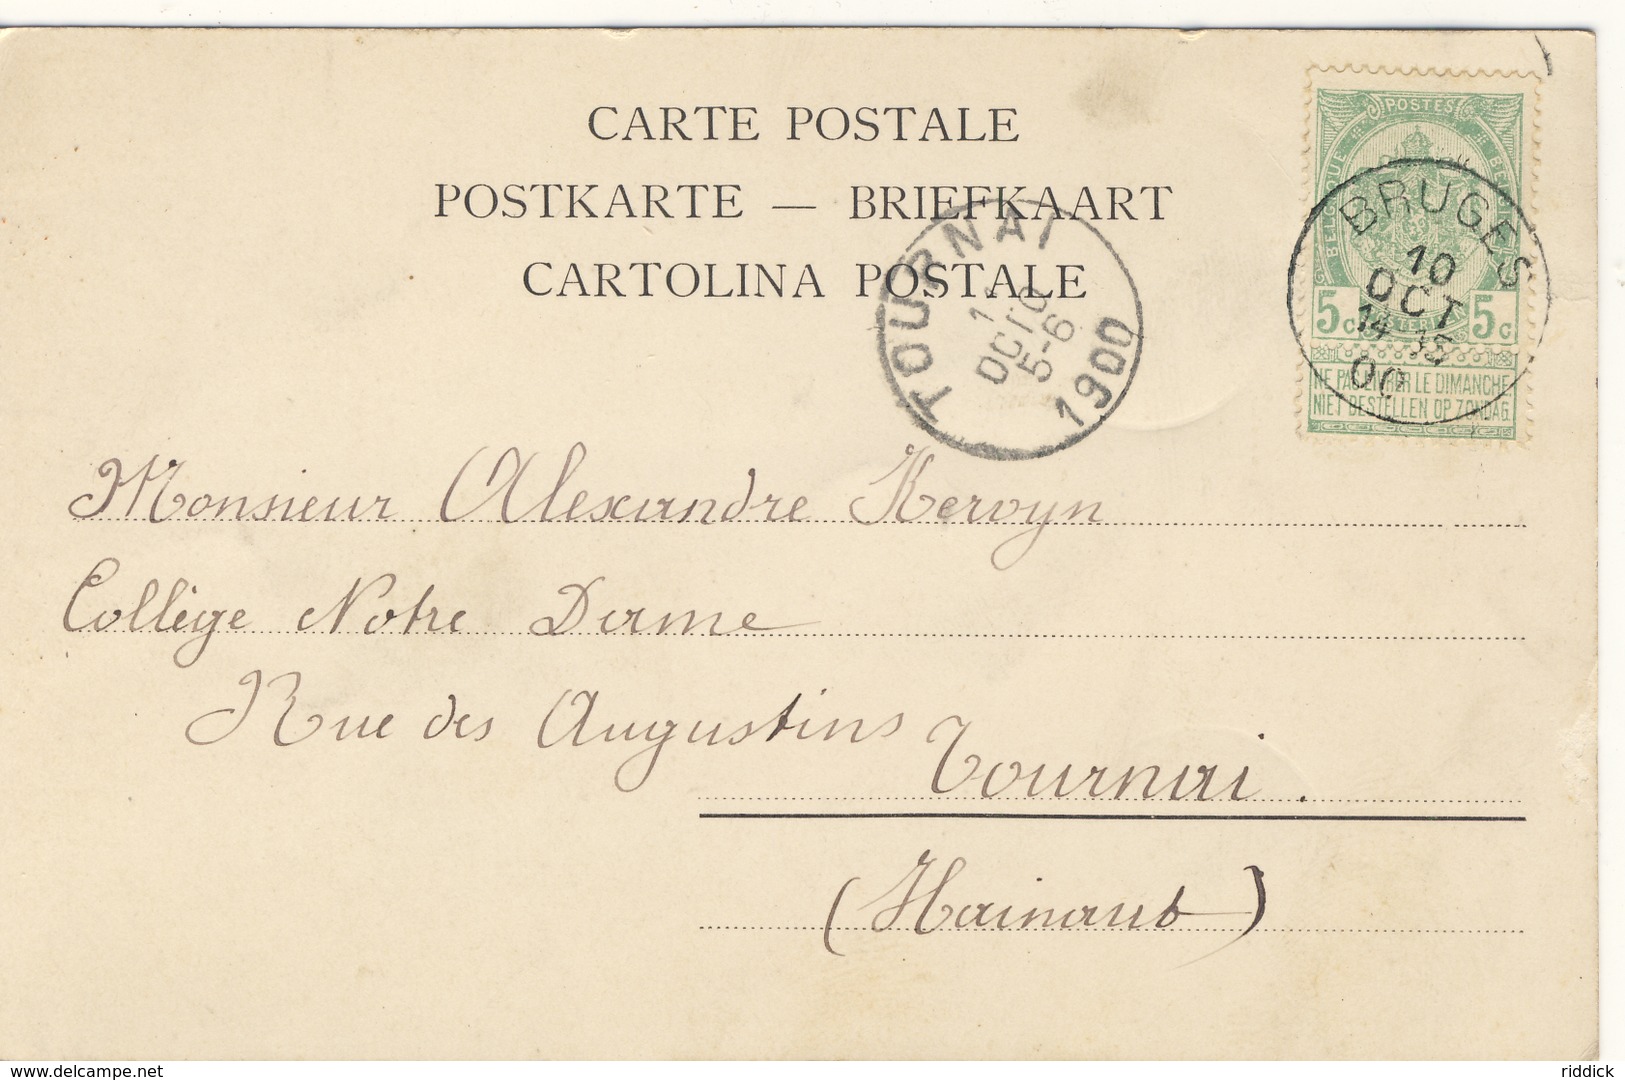 CARTE POSTALE
POSTKARTE — BRIEFKAART
CARTOLINA POSTALE
POSTES
BELGIQUE
5c 5c
NE PAS LIVRER LE DIMANCHE
NIET BESTELLEN OP ZONDAG
BRUGES
10
OCT
14-15
00
TOURNAI
OCTO
5-6
1900
Monsieur Alexandre Kervyn
Collège Notre Dame
Rue des Augustins
Tournai.
(Hainaut)
delcampe.net
riddick